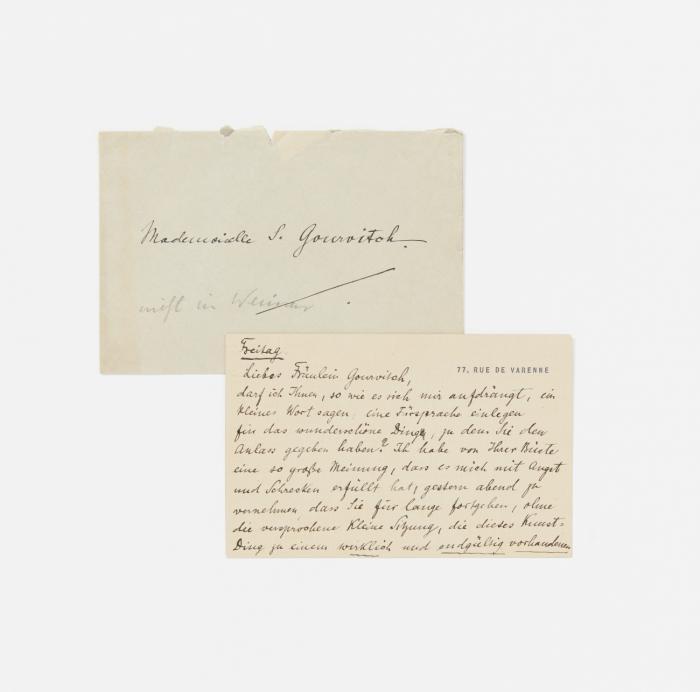 Mademoiselle S. Gourvitch.
nicht in Weimar
Freitag.
77, RUE DE VARENNE
Liebes Fräulein Gourvitch,
darf ich Ihnen, so wie es sich mir aufdrängt, ein
kleines Wort sagen, eine Fürsprache einlegen
für das wunderschöne Ding, zu dem Sie den
Anlass gegeben haben? Ich habe von Ihrer Büste
eine so große Meinung, dass es mich mit Angst
und Schrecken erfüllt hat, gestern abend zu
vernehmen dass Sie für lange fortgehen, ohne
die versprochene kleine Sitzung, die dieses Kunst-
Ding zu einem wirklich und endgültig vorhandenen